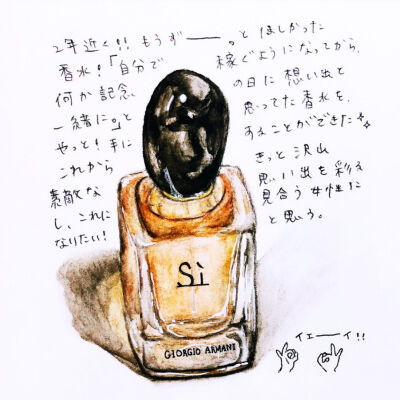 2年近く!! もうずーーーっと ほしかった
香水!「自分で 稼ぐようになってから、
何か記念、 の日に 想い出と
一緒に。」と 思ってた香水を、
やっと!手に ことができた
これから きっと 沢山
素敵な 思い出を彩え
し、これに 見合う女性に
なりたい! と思う。
Sì
GIORGIO ARMANI
イェーーイ!!